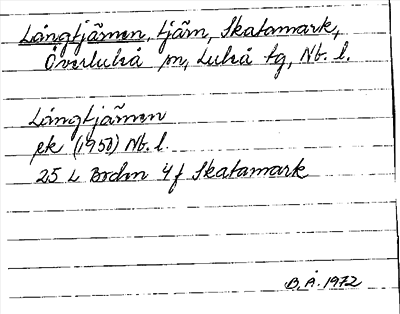 Långtjärnen, tjärn, Skatamark,
Överluleå sn, Luleå tg, Nb. l.
Långtjärnen
ek (1950) Nb. l.
25 L Boden 4 f Skatamark
B. Å. 1972